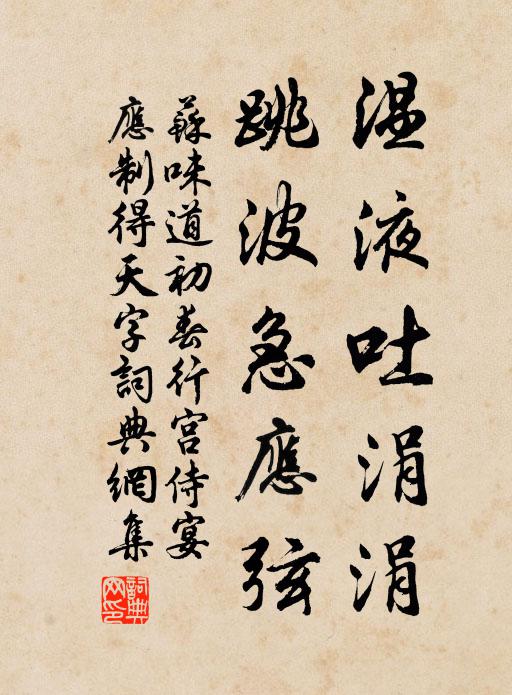 温液吐涓涓
跳波急應弦
蘇味道初春行宮侍宴
應制得天字詞典網集
詞典網印